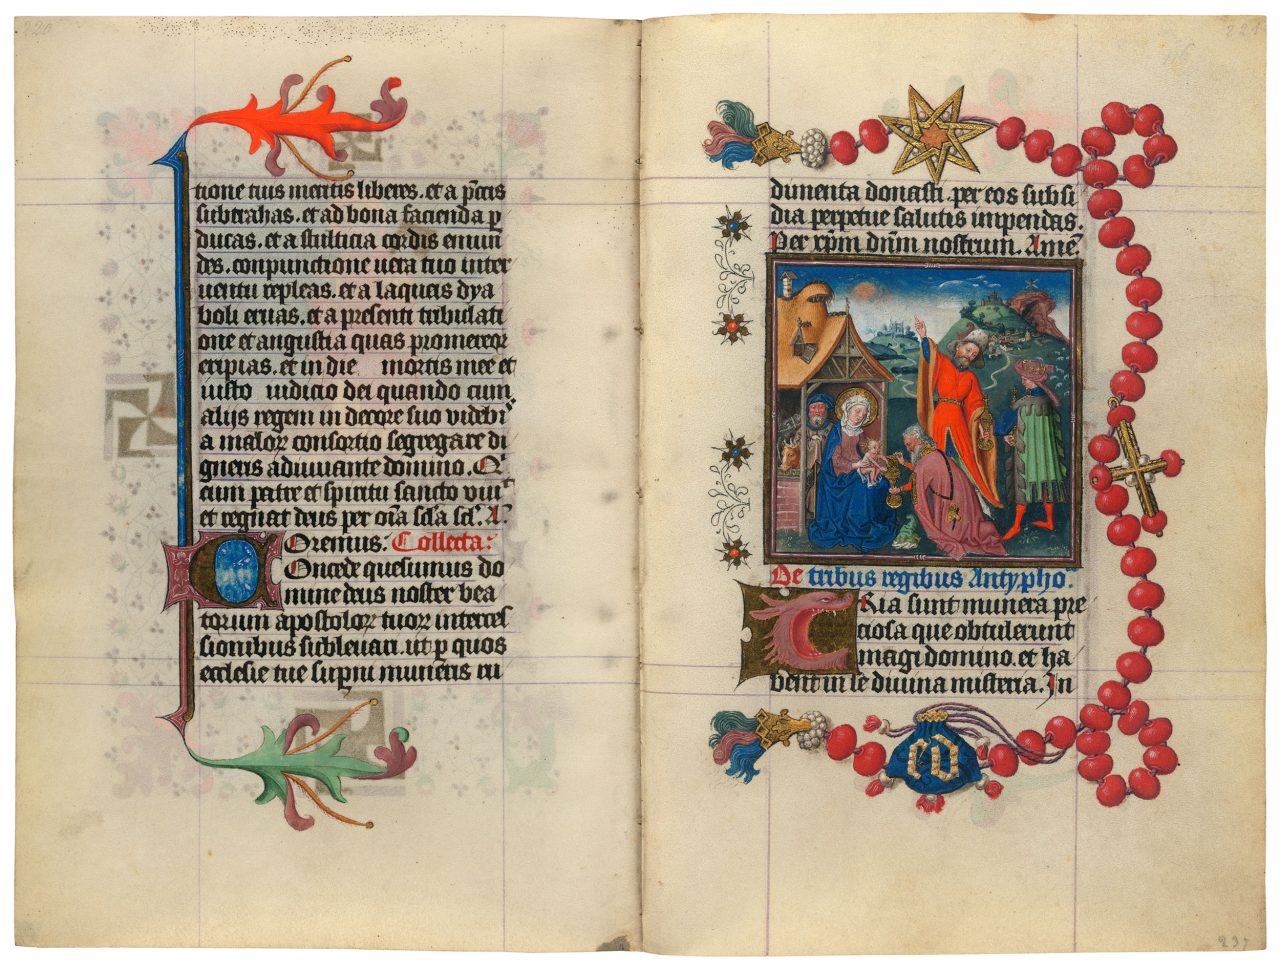 220
tione tuis meritis liberes. et a p̄ccis
subtrahas. et ad bona facienda ꝑ
ducas. et a stulticia cordis emun
des. conpunctione uera tuo inter
uentu repleas. et a laqueis dya
boli eruas. et a presenti tribulati
one et angustia quas promereor
eripias. et in die mortis mee et
iusto iudicio dei quando cum
alijs regem in decore suo videbi
a maloꝝ consortio segregare di
gneris adiuuante domino. Q
cum patre et spiritu sancto viuit
et regnat deus per oīa scl̄a scl̄. A.
Oremus. Collecta:
Concede quesumus do
mine deus noster bea
torum apostoloꝝ tuoꝝ interces
sionibus subleuari. ut ꝑ quos
ecclesie tue supni muneris ru
221
dimenta donasti. per eos subsi
dia perpetue salutis impendas.
Per xp̄m dn̄m nostrum. Ame̅
De tribus regibus Antypho.
Tria sunt munera pre
ciosa que obtulerunt
magi domino. et ha
bent in se diuina misteria. In
ed
237